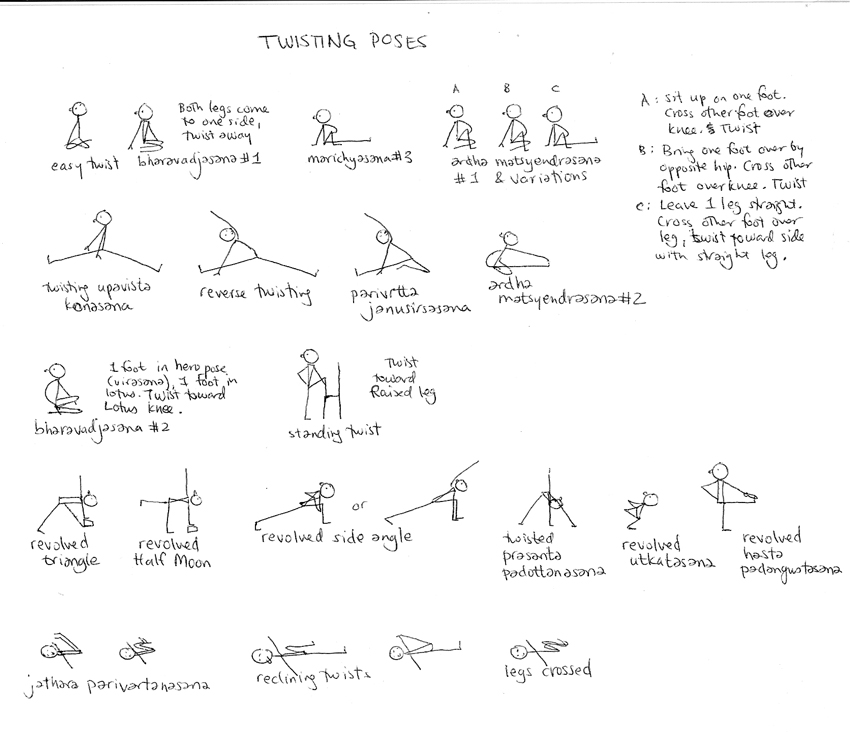 TWISTING POSES
easy twist
bharavadjasana #1
Both legs come
to one side,
twist away
marichyasana #3
A B C
ardha matsyendrasana
#1 & variations
A: Sit up on one foot.
Cross other foot over
knee. & Twist
B: Bring one foot over by
opposite hip. Cross other
foot over knee. Twist
C: Leave 1 leg straight.
Cross other foot over
leg, twist toward side
with straight leg.
twisting upavista
konasana
reverse twisting
parivrtta
janusirsasana
ardha
matsyendrasana #2
bharavadjasana #2
1 foot in hero pose
(virasana), 1 foot in
lotus. Twist toward
Lotus knee.
standing twist
Twist
toward
Raised leg
revolved
triangle
revolved
Half Moon
or
revolved side angle
twisted
prasanta
padottanasana
revolved
utkatasana
revolved
hasta
padangustasana
jathara parivartanasana
reclining twists
legs crossed